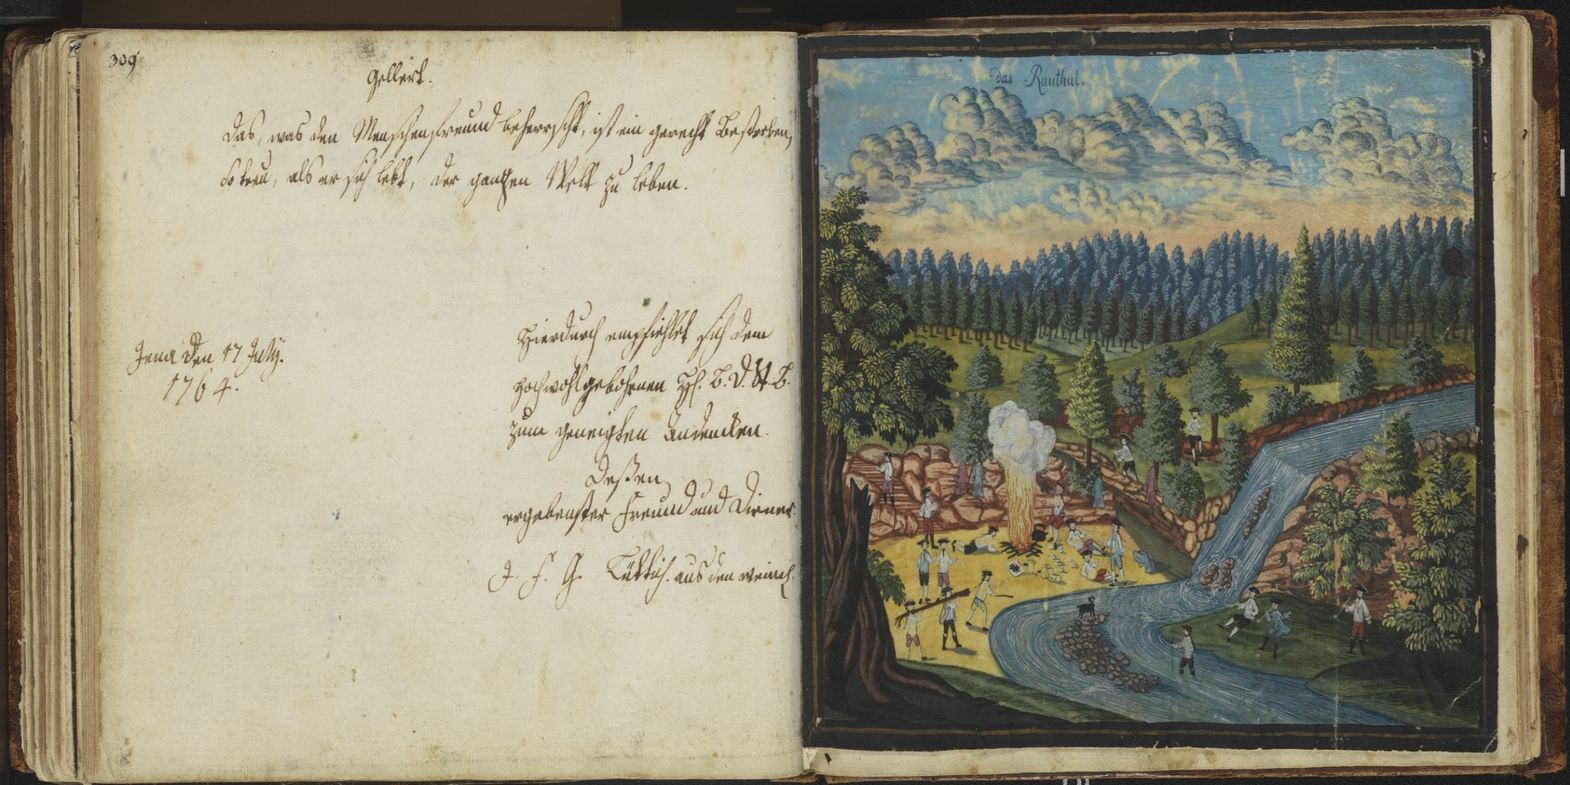 309
Gellert.
Das, was den Menschenfreund beherrscht, ist ein gerecht Bestreben,
so treu, als er sich lebt, der gantzen Welt zu leben.
Jena den 17 July.
1764.
Hierdurch empfiehlet sich dem
Hochwohlgebohrnen
zum geneigten Andencken.
Deßen
ergebenster Freund und Diener
J. F. G. aus den
das Rauthal.